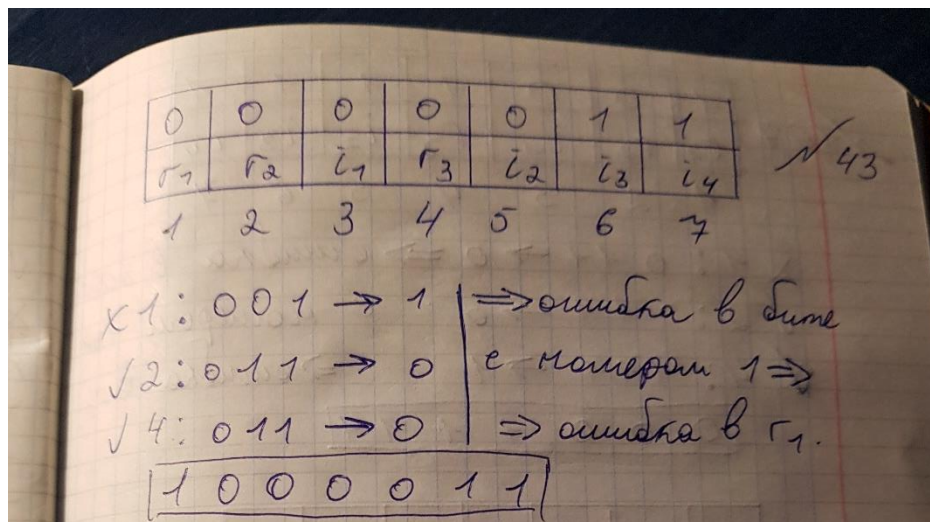 0 0 0 0 0 1 1
r1 r2 i1 r3 i2 i3 i4
№ 43
1 2 3 4 5 6 7
x 1 : 0 0 1 → 1 ⇒ ошибка в бите
√ 2 : 0 1 1 → 0 с номером 1 ⇒
√ 4 : 0 1 1 → 0 ⇒ ошибка в r1.
1 0 0 0 0 1 1